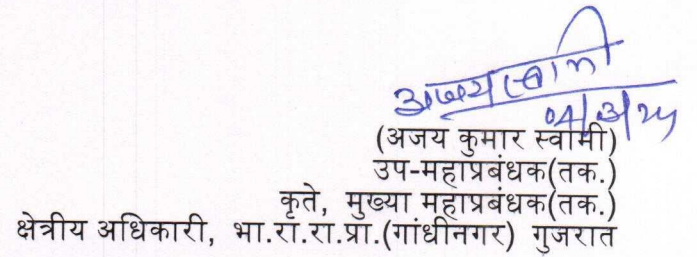 अजय स्वामी
04/3/25
(अजय कुमार स्वामी)
उप-महाप्रबंधक(तक.)
कृते, मुख्या महाप्रबंधक(तक.)
क्षेत्रीय अधिकारी, भा.रा.रा.प्रा.(गांधीनगर) गुजरात